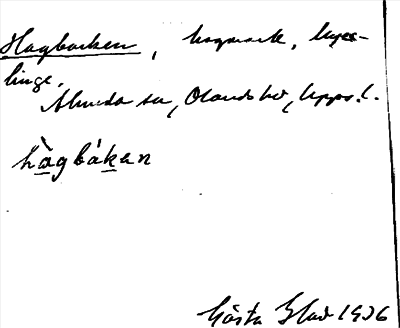 Hagbacken, hagmark, hyes-
linge.
Almunda sn, Olands hd, Upps. l.
hàgbákən
Gösta Blad 1936